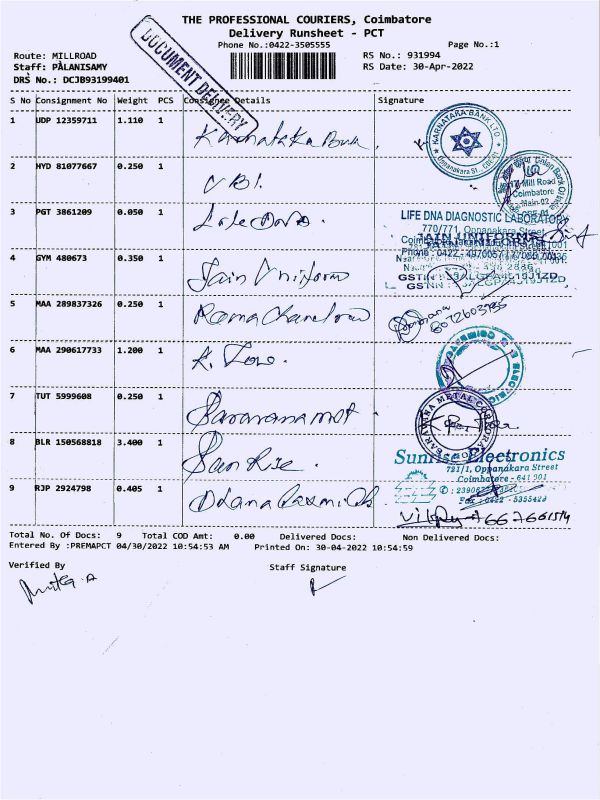 THE PROFESSIONAL COURIERS, Coimbatore
Delivery Runsheet - PCT
Phone No.:0422-3505555
Page No.:1
DOCUMENT DELIVERY
Route: MILLROAD
RS No.: 931994
Staff: PALANISAMY
RS Date: 30-Apr-2022
DRS No.: DCJB93199401
S No Consignment No Weight PCS Consignee Details Signature
1 UDP 12359711 1.110 1 Karnataka Bank
KARNATAKA BANK LTD
Oppanakara St.
2 HYD 81077667 0.250 1 UBI.
Union Bank Of India
Mill Road
Coimbatore
Main-02
3 PGT 3861209 0.050 1
LIFE DNA DIAGNOSTIC LABORATORY
770/771, Oppanakara Street
JAIN UNIFORMS
4 GYM 480673 0.350 1 Jain Uniform
5 MAA 289837326 0.250 1 Ramachandran
6 MAA 290617733 1.200 1
7 TUT 5999608 0.250 1 Saravana met
SARAVANA METAL CORPORATION
8 BLR 150568818 3.400 1 Sun Rise.
Sunrise Electronics
721/1, Oppanakara Street
Coimbatore - 641 001
9 RJP 2924798 0.405 1
Fax : 0422 - 5355424
Total No. Of Docs: 9 Total COD Amt: 0.00 Delivered Docs: Non Delivered Docs:
Entered By :PREMAPCT 04/30/2022 10:54:53 AM Printed On: 30-04-2022 10:54:59
Verified By
Staff Signature